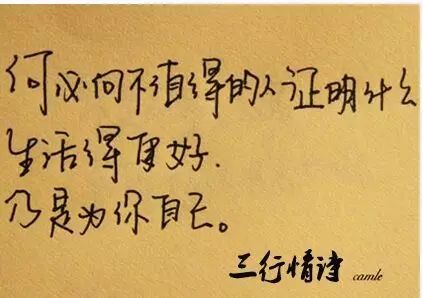 何必向不值得的人证明什么
生活得更好.
乃是为你自己。
三行情诗 camle